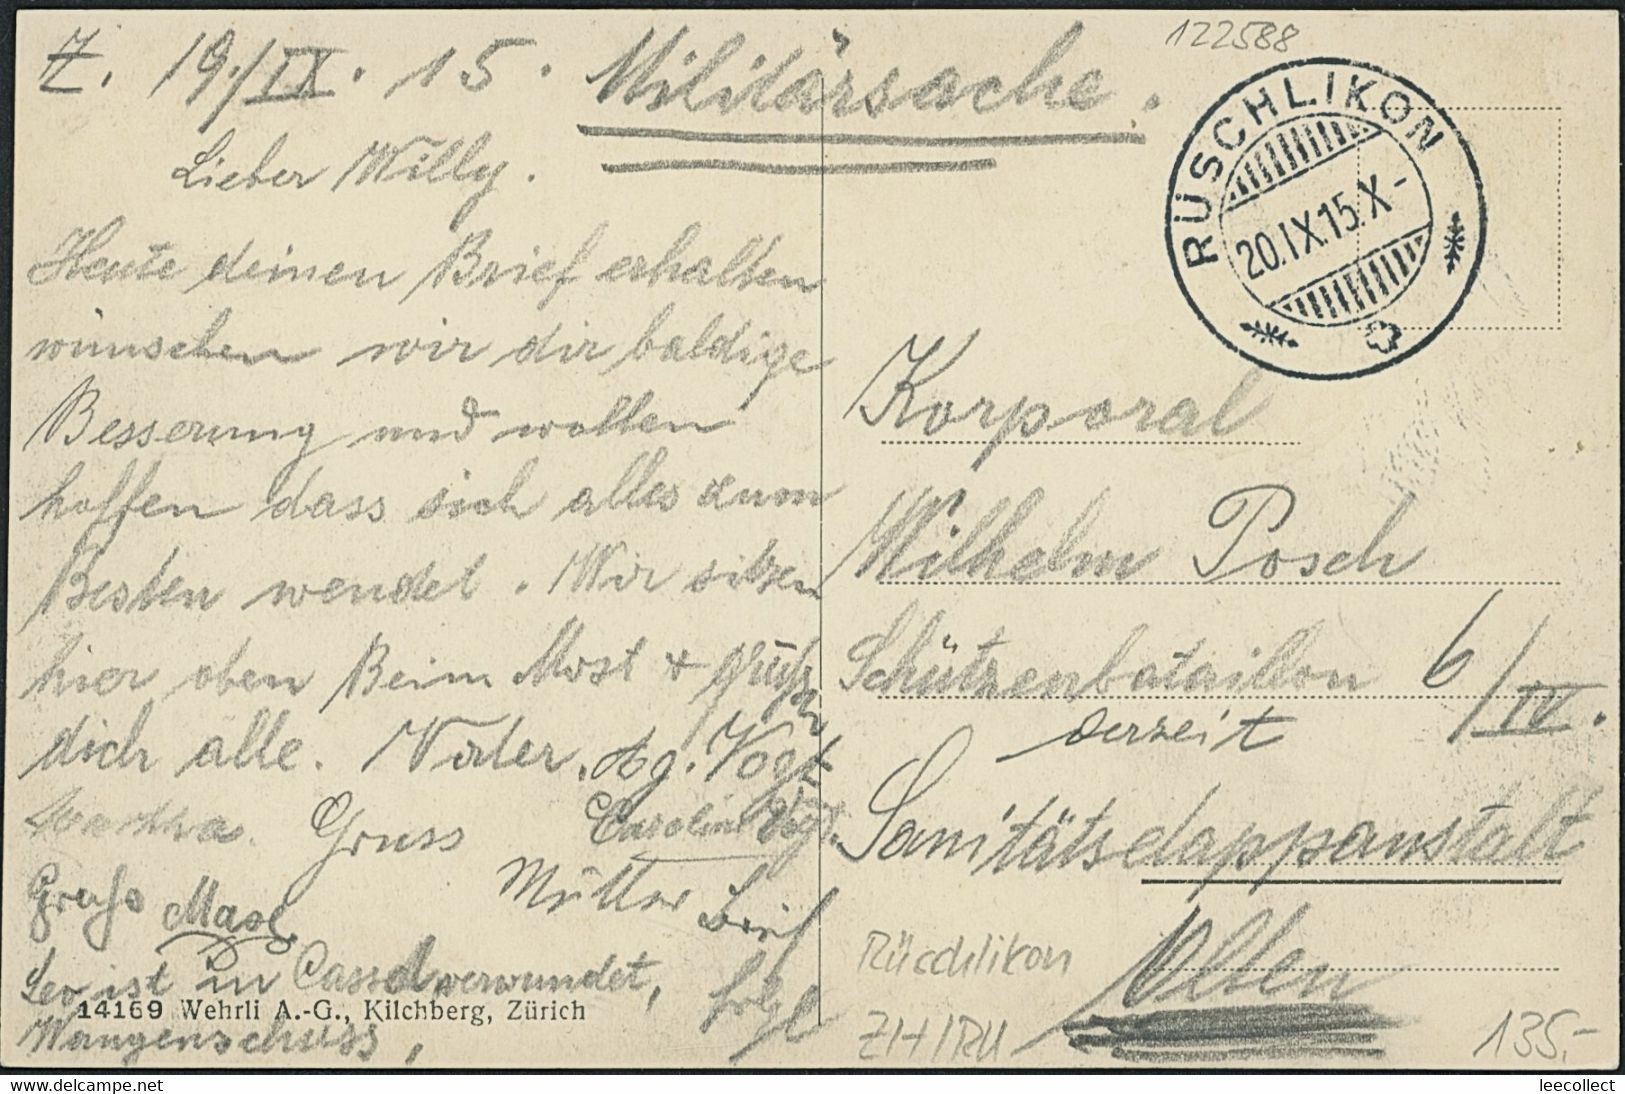 122588
Z. 19./IX. 15. Militärsache.
RÜSCHLIKON
20.IX.15.X-
Lieber Willy.
Heute deinen Brief erhalten
wünschen wir dir baldige
Besserung und wollen
hoffen dass sich alles zum
Besten wendet. Wir sitzen
hier oben Beim Most +
dich alle. Vater. Vogt
Gruss Caroline Vogt.
Gruss Max. Mutter Brief
Leo ist in Cassel verwundet, folgt
Wangenschuss,
14169 Wehrli A.-G., Kilchberg, Zürich
Korporal
Wilhelm Posch
Schützenbataillon 6/IV.
derzeit
Sanitätsdappanstalt
Olten
Rüschlikon
ZH/RU
135.-
leecollect